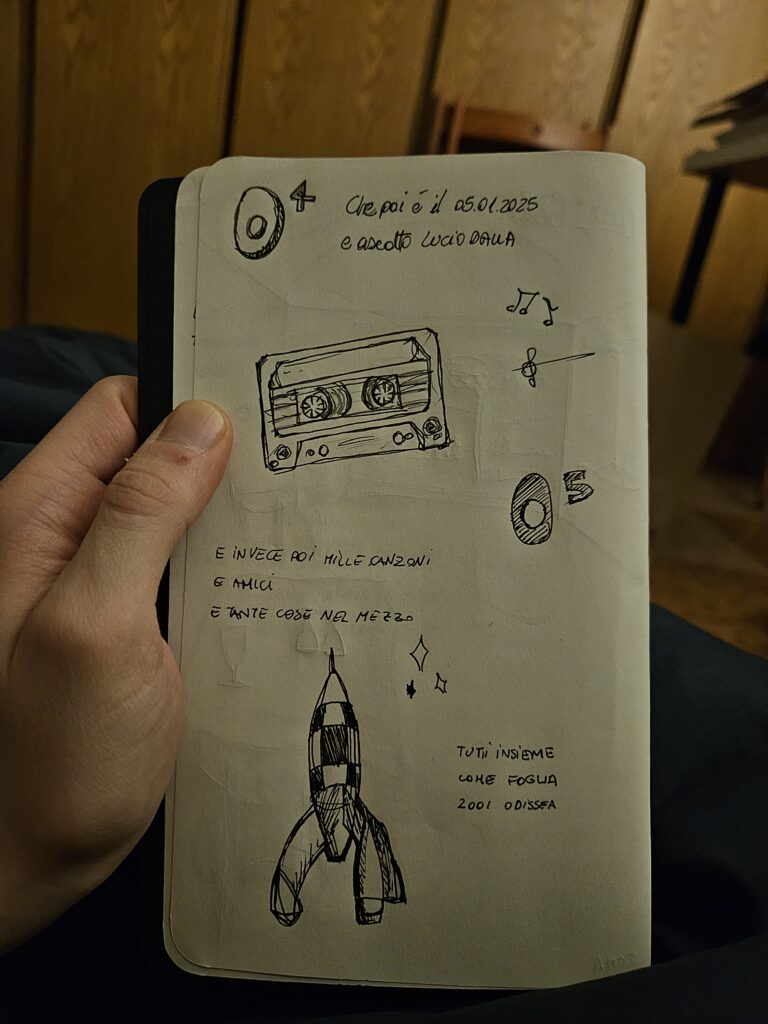 04
Che poi è il 05.01.2025
e ascolto LUCIO DALLA
05
E INVECE POI MILLE CANZONI
E AMICI
E TANTE COSE NEL MEZZO
TUTTI INSIEME
COME FOGLIA
2001 ODISSEA